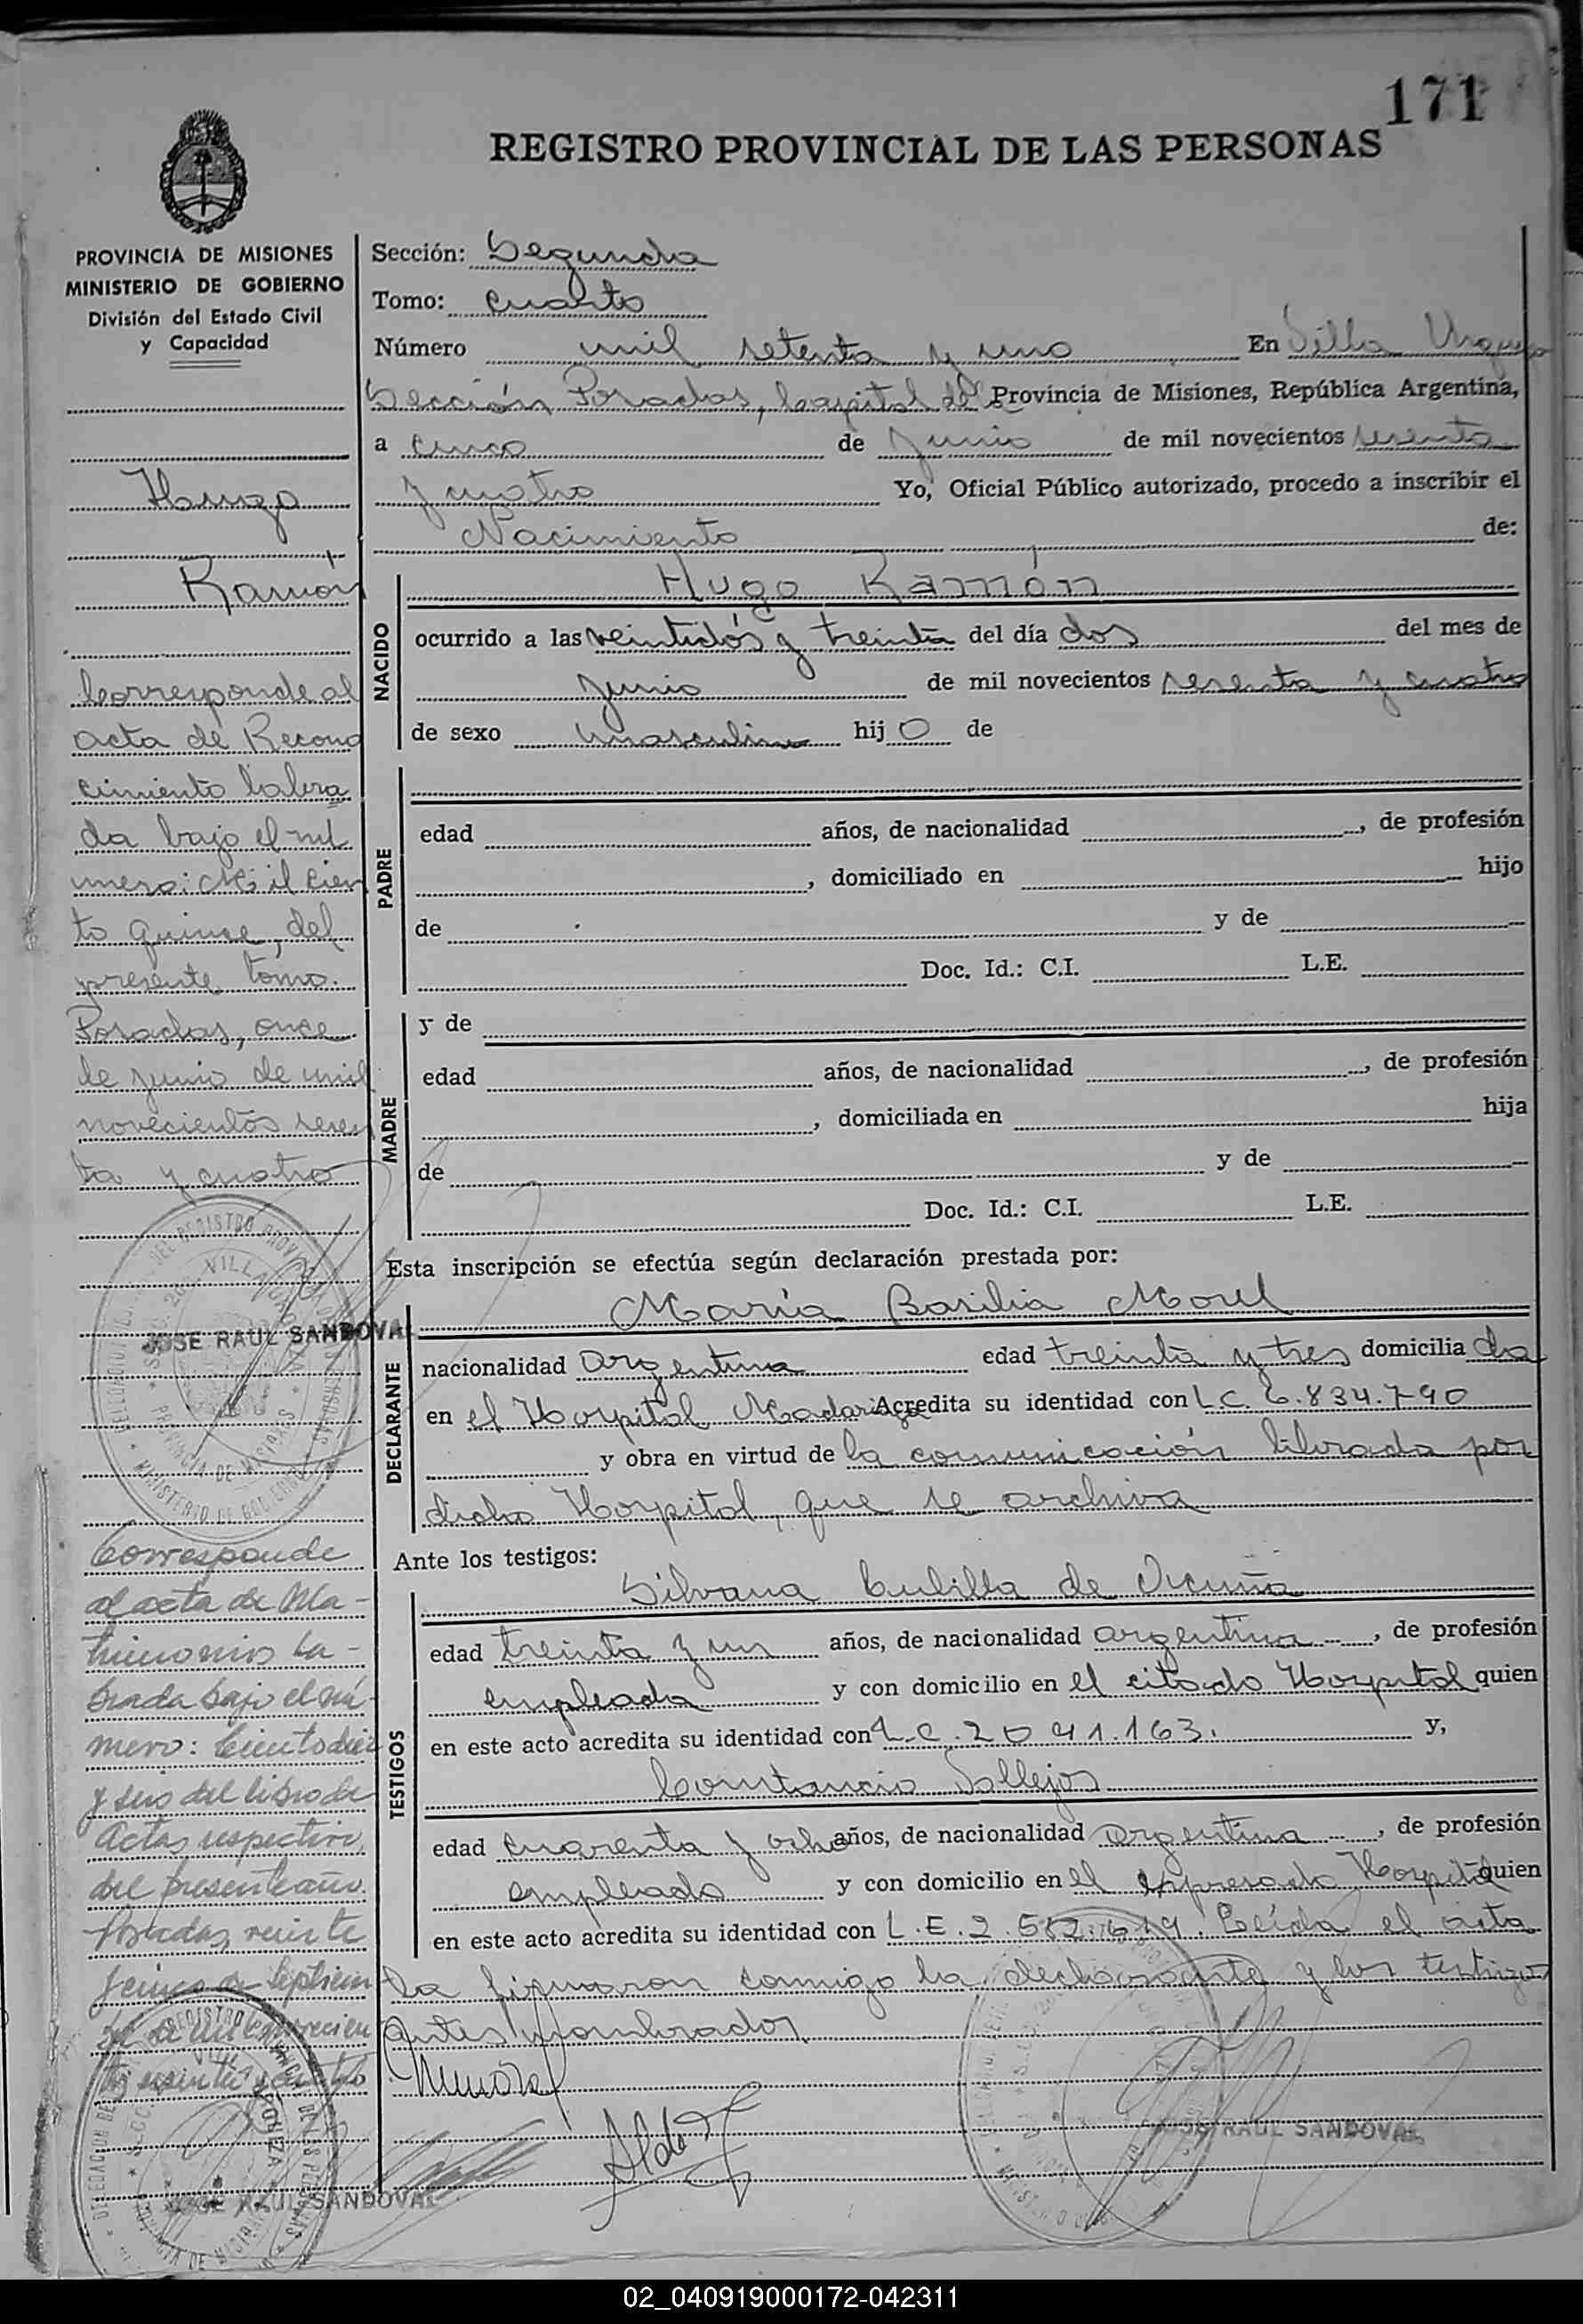 171
REGISTRO PROVINCIAL DE LAS PERSONAS
PROVINCIA DE MISIONES
MINISTERIO DE GOBIERNO
División del Estado Civil
y Capacidad
Hugo
Ramón
Corresponde al
acta de Recono
cimiento labra
da bajo el nú
mero: Mil cien
to quince, del
presente tomo.
Posadas, once
de junio de mil
novecientos sesen
ta y cuatro
JOSE RAUL SANDOVAL
Corresponde
al acta de Ma-
trimonio la-
brada bajo el nú-
mero: Ciento diez
y seis del libro de
Actas respectivo,
del presente año.
Posadas, veinte
y cinco de septiem
bre de mil novecien
tos sesenta y cuatro
JOSE RAUL SANDOVAL
Sección: Segunda
Tomo: cuarto
Número mil setenta y uno En Villa Urquiza
Sección Posadas, Capital de Provincia de Misiones, República Argentina,
a cinco de junio de mil novecientos sesenta
y cuatro Yo, Oficial Público autorizado, procedo a inscribir el
Nacimiento de:
NACIDO
Hugo Ramón
ocurrido a las veintidós y treinta del día dos del mes de
junio de mil novecientos sesenta y cuatro
de sexo masculino hij o de
PADRE
edad años, de nacionalidad , de profesión
, domiciliado en hijo
de y de
Doc. Id.: C.I. L.E.
MADRE
y de
edad años, de nacionalidad , de profesión
, domiciliada en hija
de y de
Doc. Id.: C.I. L.E.
Esta inscripción se efectúa según declaración prestada por:
DECLARANTE
María Basilia Morel
nacionalidad argentina edad treinta y tres domicilia da
en el Hospital Madariaga Acredita su identidad con L.C. 6.834.790
y obra en virtud de la comunicación librada por
dicho Hospital, que se archiva
Ante los testigos:
TESTIGOS
Silvana Cubilla de Vicuña
edad treinta y un años, de nacionalidad argentina, de profesión
empleada y con domicilio en el citado Hospital quien
en este acto acredita su identidad con L.C. 2041.163. y,
Constancio Vallejos
edad cuarenta y ocho años, de nacionalidad argentina, de profesión
empleado y con domicilio en el expresado Hospital quien
en este acto acredita su identidad con L.E. 2.512.619. Leída el acta
la firmaron conmigo la declarante y los testigos
antes nombrados.
JOSE RAUL SANDOVAL
02_040919000172-042311